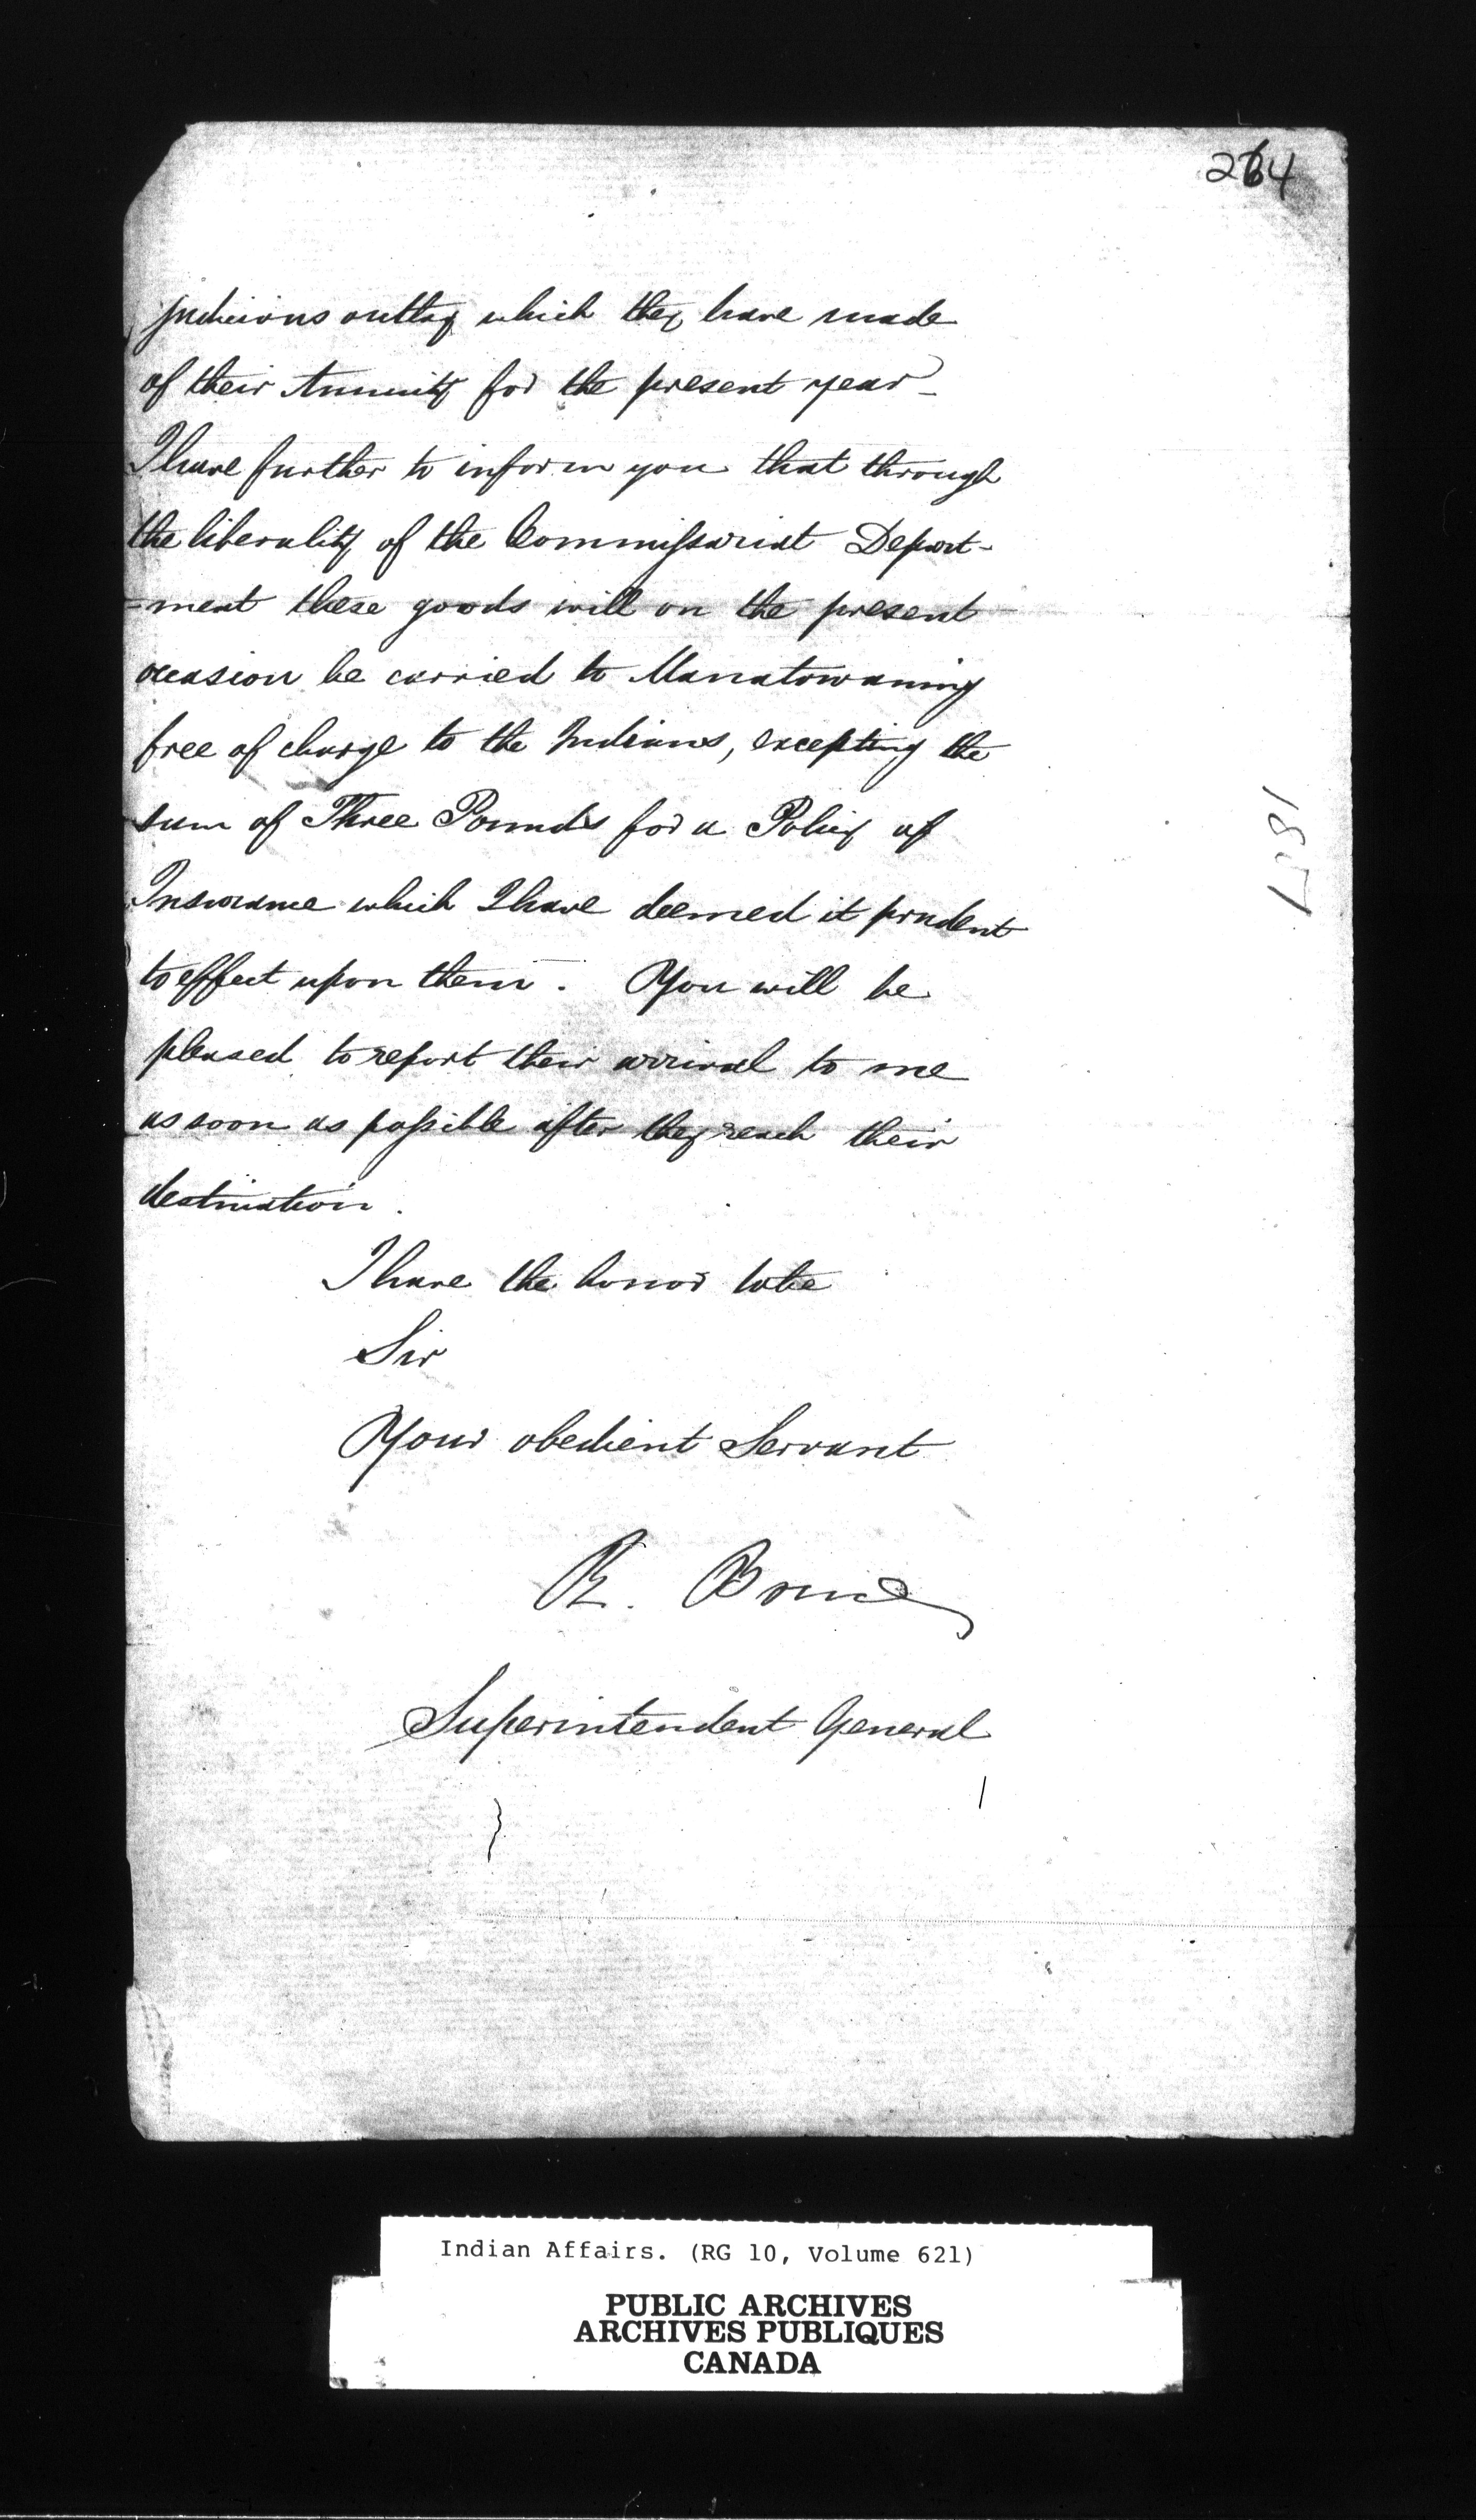 264
judicious outlay which they have made
of their Annuity for the present year _
I have further to inform you that through
the liberality of the Commissariat Depart-
=ment these goods will on the present
occasion be carried to Manatowaning
free of charge to the Indians, excepting the
sum of Three Pounds for a Policy of
Insurance which I have deemed it prudent
to effect upon them. You will be
pleased to report their arrival to me
as soon as possible after they reach their
destination.
I have the honor to be
Sir
Your obedient Servant
R. Bruce
Superintendent General
Indian Affairs. (RG 10, Volume 621)
PUBLIC ARCHIVES
ARCHIVES PUBLIQUES
CANADA